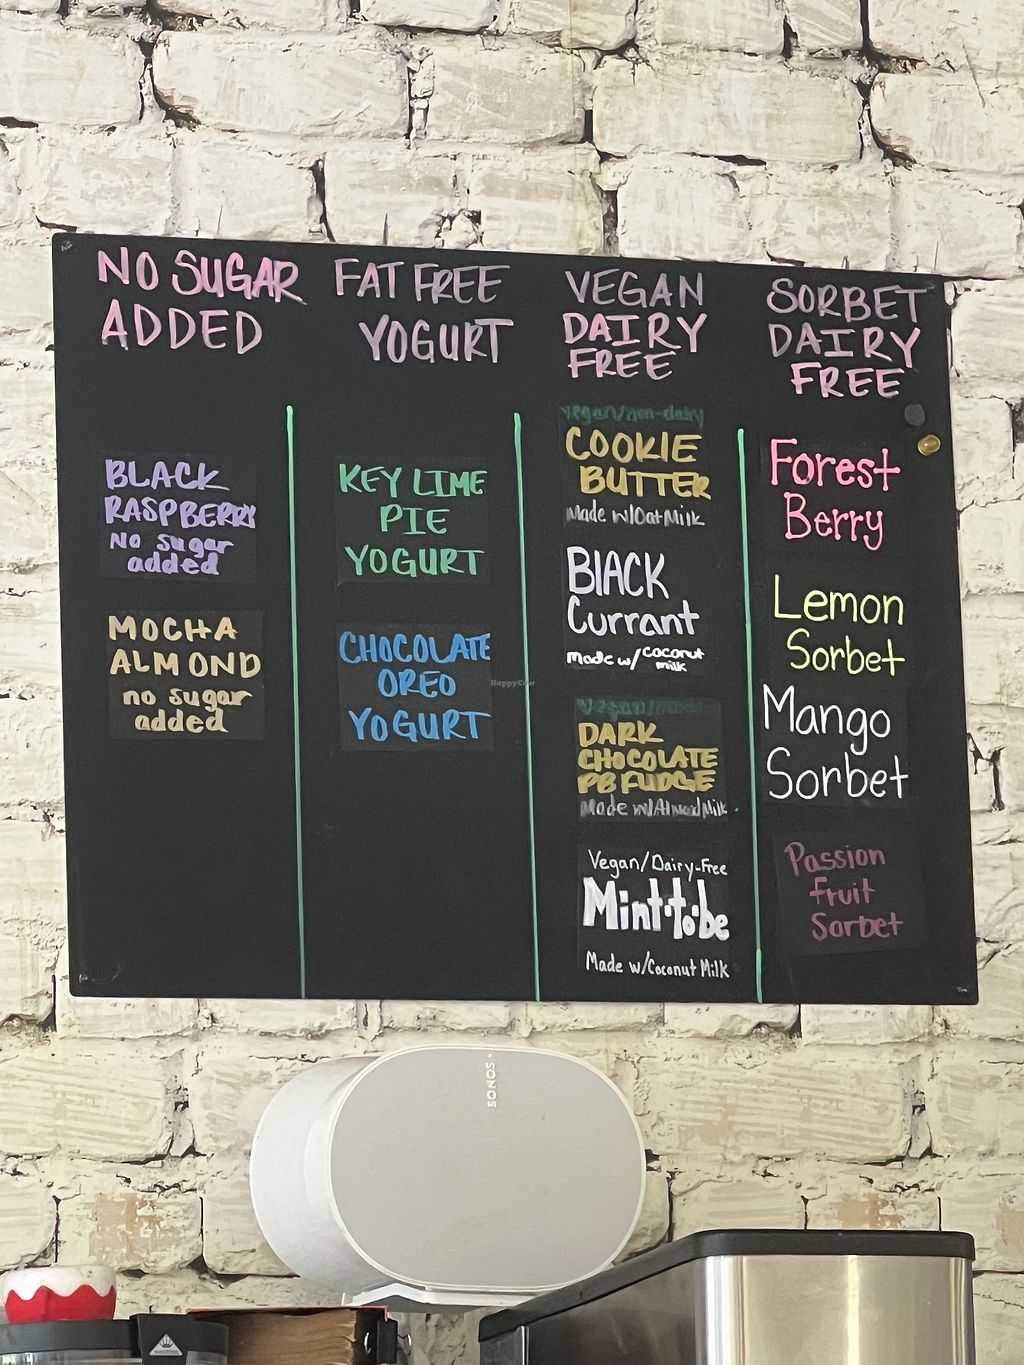 NO SUGAR
ADDED
BLACK
RASPBERRY
No sugar
added
MOCHA
ALMOND
no sugar
added
FAT FREE
YOGURT
KEY LIME
PIE
YOGURT
CHOCOLATE
OREO
YOGURT
VEGAN
DAIRY
FREE
vegan/non-dairy
COOKIE
BUTTER
Made w/Oat Milk
BlACK
Currant
made w/ coconut
milk
Vegan/
DARK
CHOCOLATE
PB FUDGE
Made w/Almond Milk
Vegan/Dairy-Free
Mint-to-be
Made w/Coconut Milk
SORBET
DAIRY
FREE
Forest
Berry
Lemon
Sorbet
Mango
Sorbet
Passion
fruit
Sorbet
HappyCow
SONOS